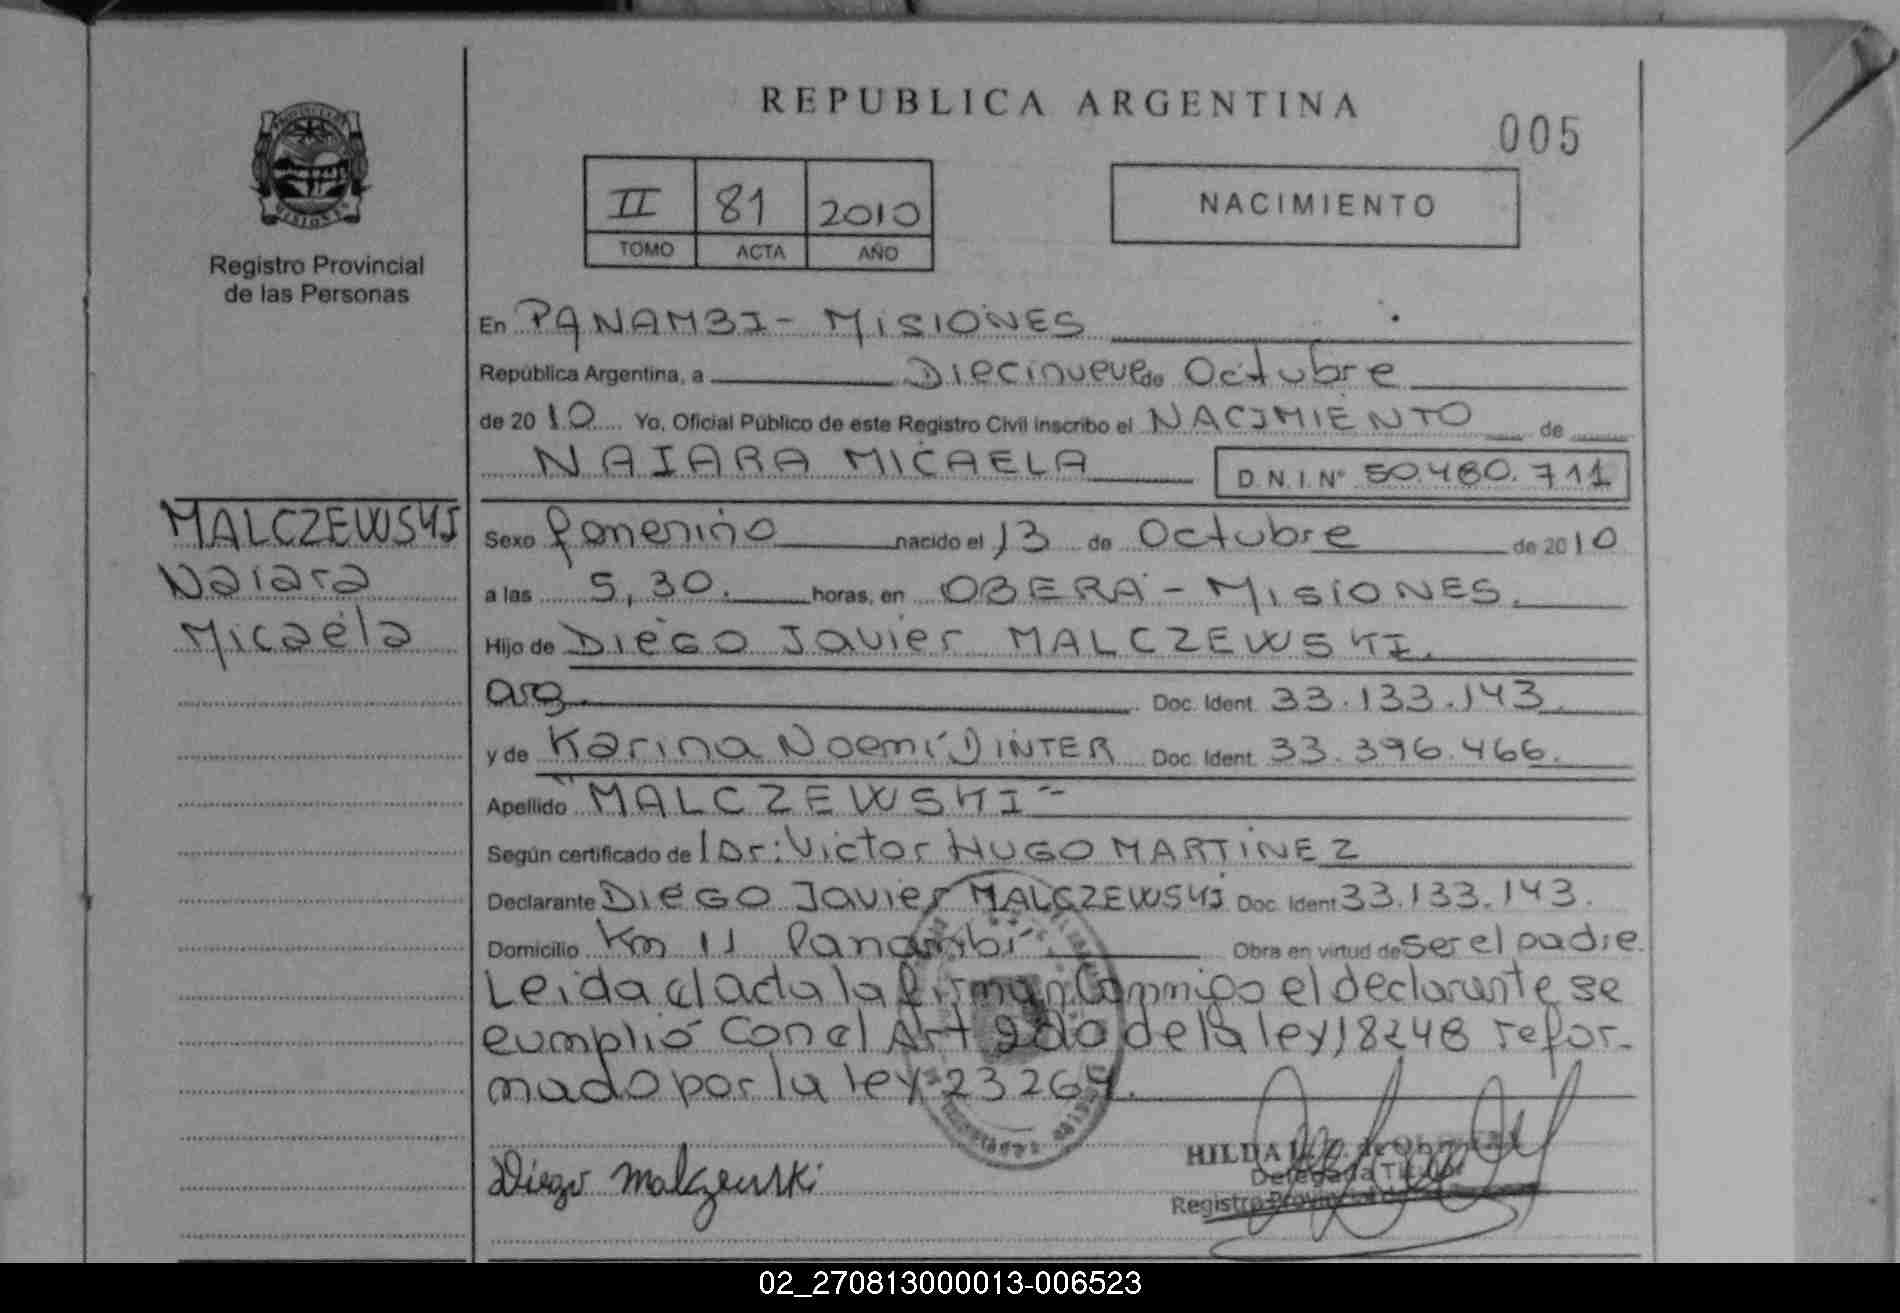 REPUBLICA ARGENTINA
005
II 81 2010
TOMO ACTA AÑO
NACIMIENTO
Registro Provincial
de las Personas
En PANAMBI - MISIONES
República Argentina, a Diecinueve de Octubre
de 2010 Yo, Oficial Público de este Registro Civil inscribo el NACIMIENTO de
NAIARA MICAELA D.N.I.Nº 50.480.711
MALCZEWSKI
Naiara
Micaela
Sexo femenino nacido el 13 de Octubre de 2010
a las 5,30. horas, en OBERÁ - MISIONES.
Hijo de DIEGO Javier MALCZEWSKI.
arg. Doc. Ident. 33.133.143.
y de Karina Noemí DINTER Doc. Ident. 33.396.466.
Apellido "MALCZEWSKI"
Según certificado de Dr: Victor HUGO MARTINEZ
Declarante DIEGO Javier MALCZEWSKI Doc. Ident 33.133.143.
Domicilio Km 11 Panambi Obra en virtud de ser el padre.
Leida el acta la firman Conmigo el declarante se
cumplió con el Art 2do de la ley 18248 refor-
mado por la ley 23264.
Diego Malczewski
HILDA
Delegada Titular
Registro Provincial
02_270813000013-006523